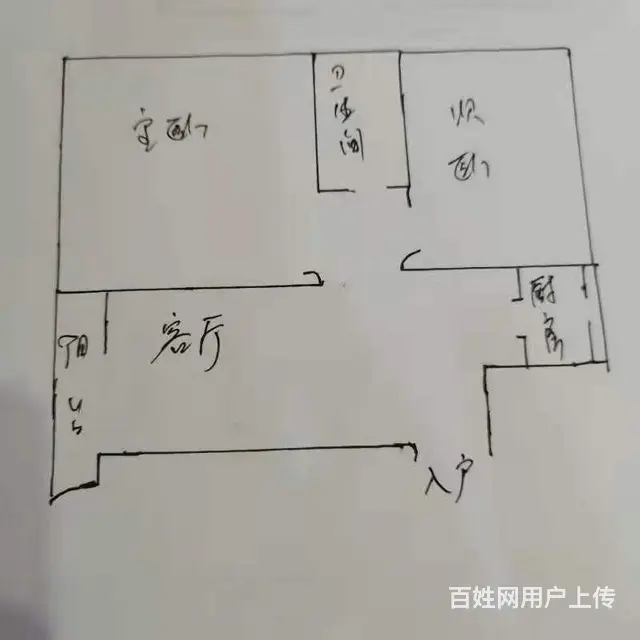 主卧
卫生间
次卧
厨房
客厅
阳台
入户
百姓网用户上传